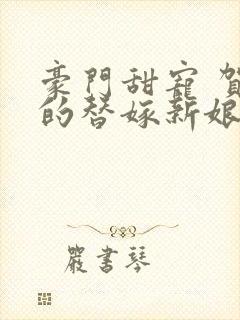 豪門甜寵 賀
的替嫁新娘
嚴書琴